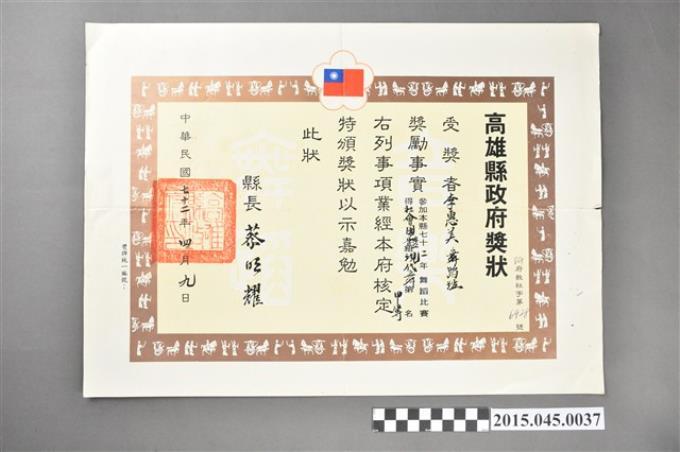 高雄縣政府獎狀
府教社字第6928號
受獎者李惠美舞蹈社
獎勵事實 參加本縣七十二年舞蹈比賽
得社會團體現代舞第 名
甲等
右列事項業經本府核定
特頒獎狀以示嘉勉
此狀
縣長 蔡明耀
中華民國七十二年四月九日
2015.045.0037